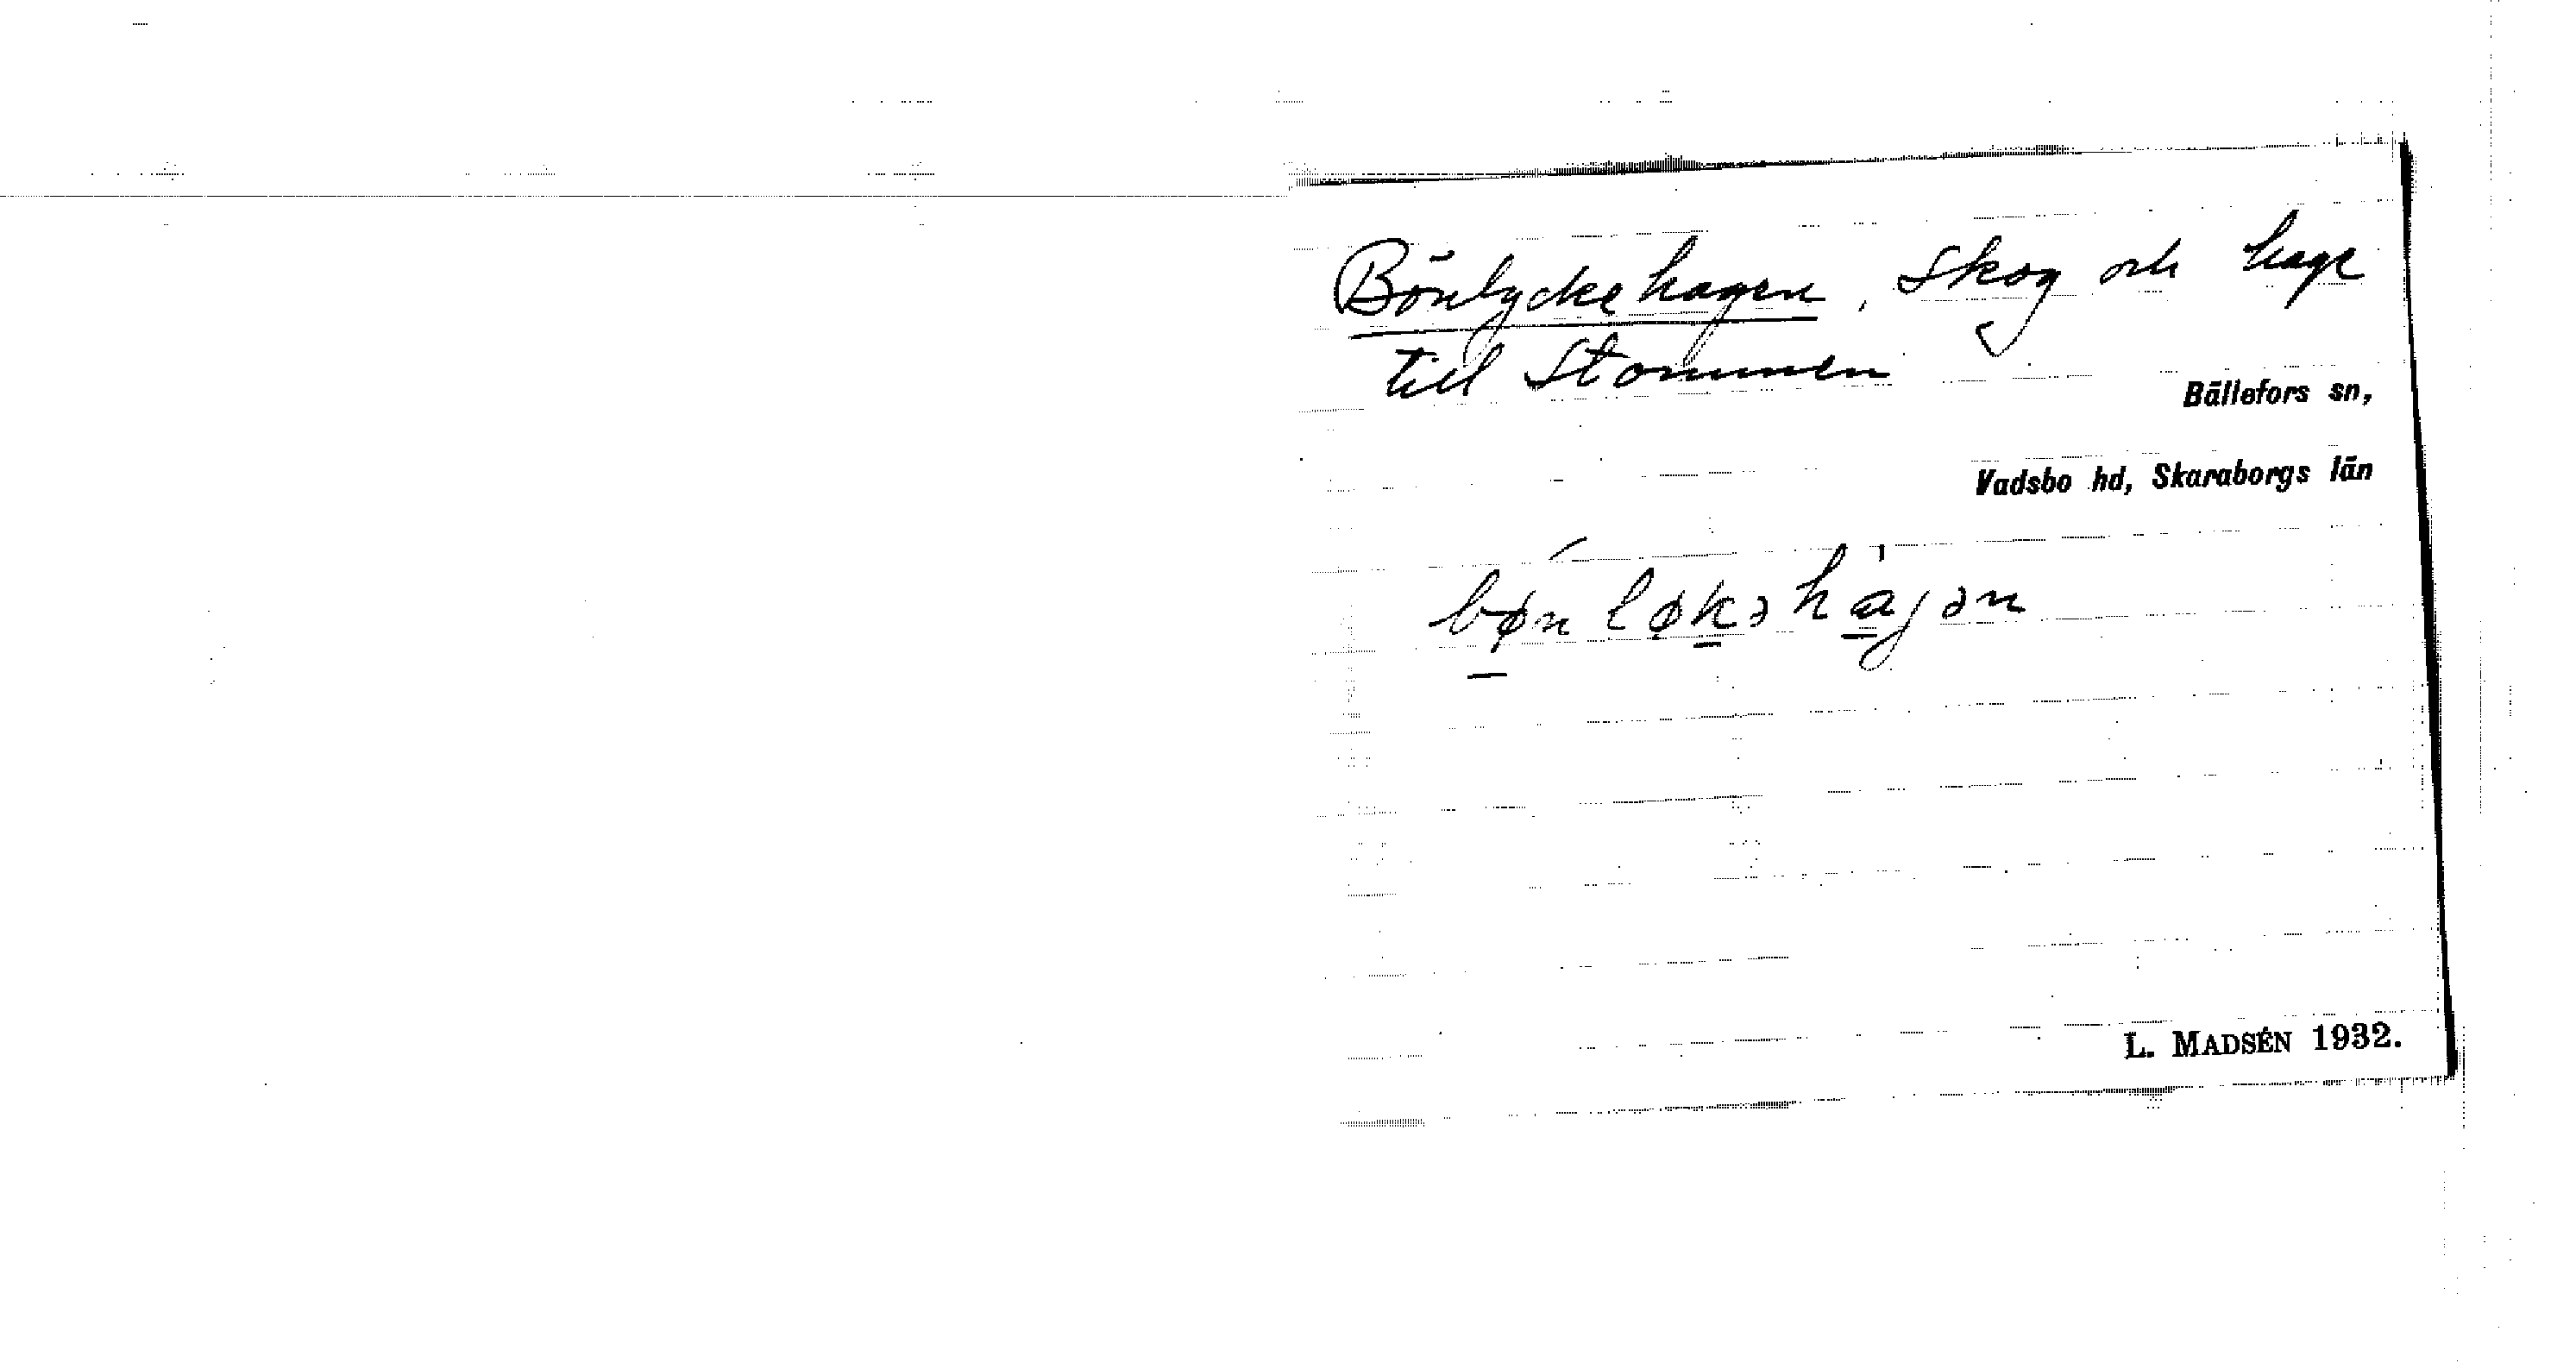 Bönlyckehagen, Skog och hage
till Stommen
Bällefors sn,
Vadsbo hd, Skaraborgs län
bøn løkəhajən
L. MADSÉN 1932.